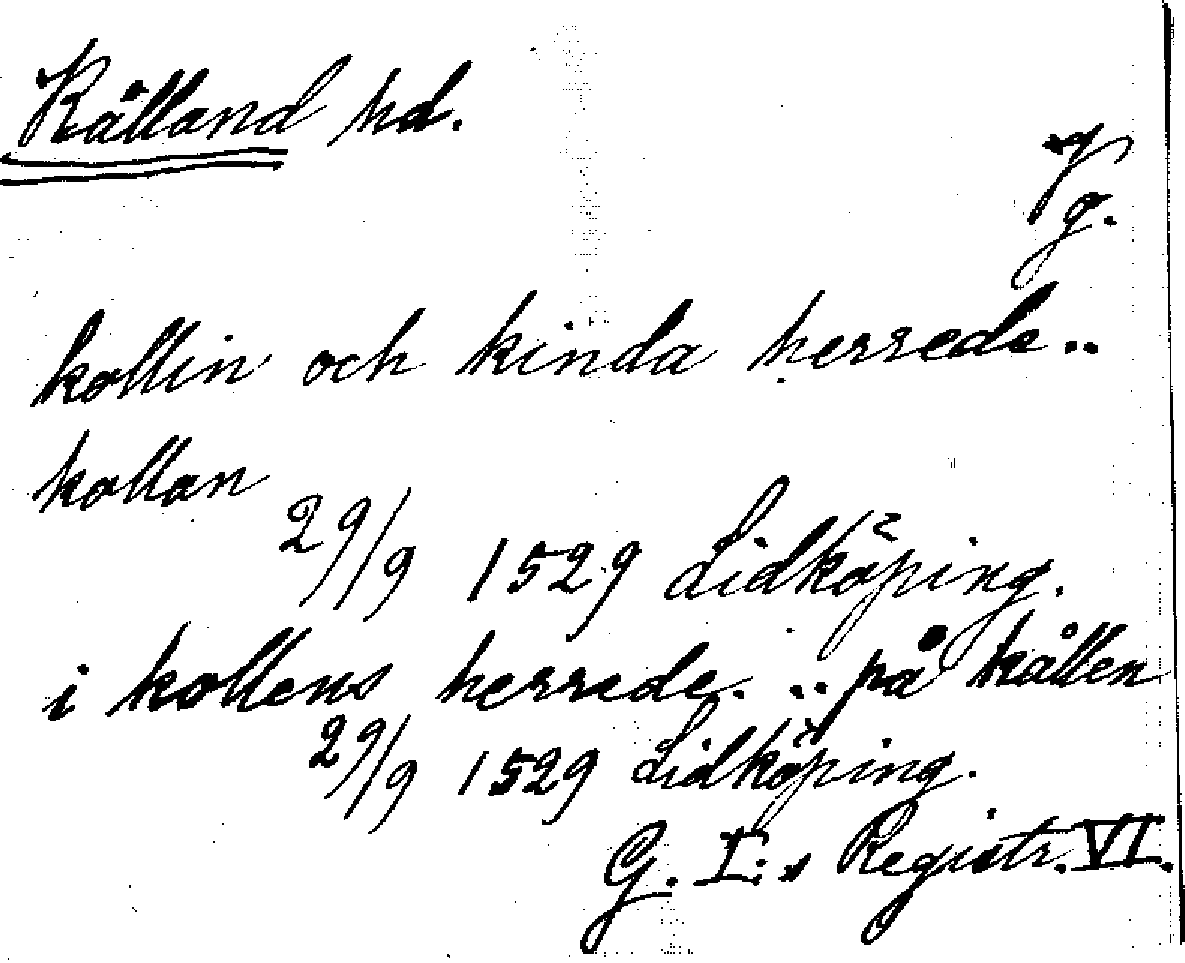 Kålland hd.
Vg.
kollin och kinda herrede..
kollan
29/9 1529 Lidköping.
i kollens herrede. .. på kållen
29/9 1529 Lidköping.
G. I:s Registr. VI.